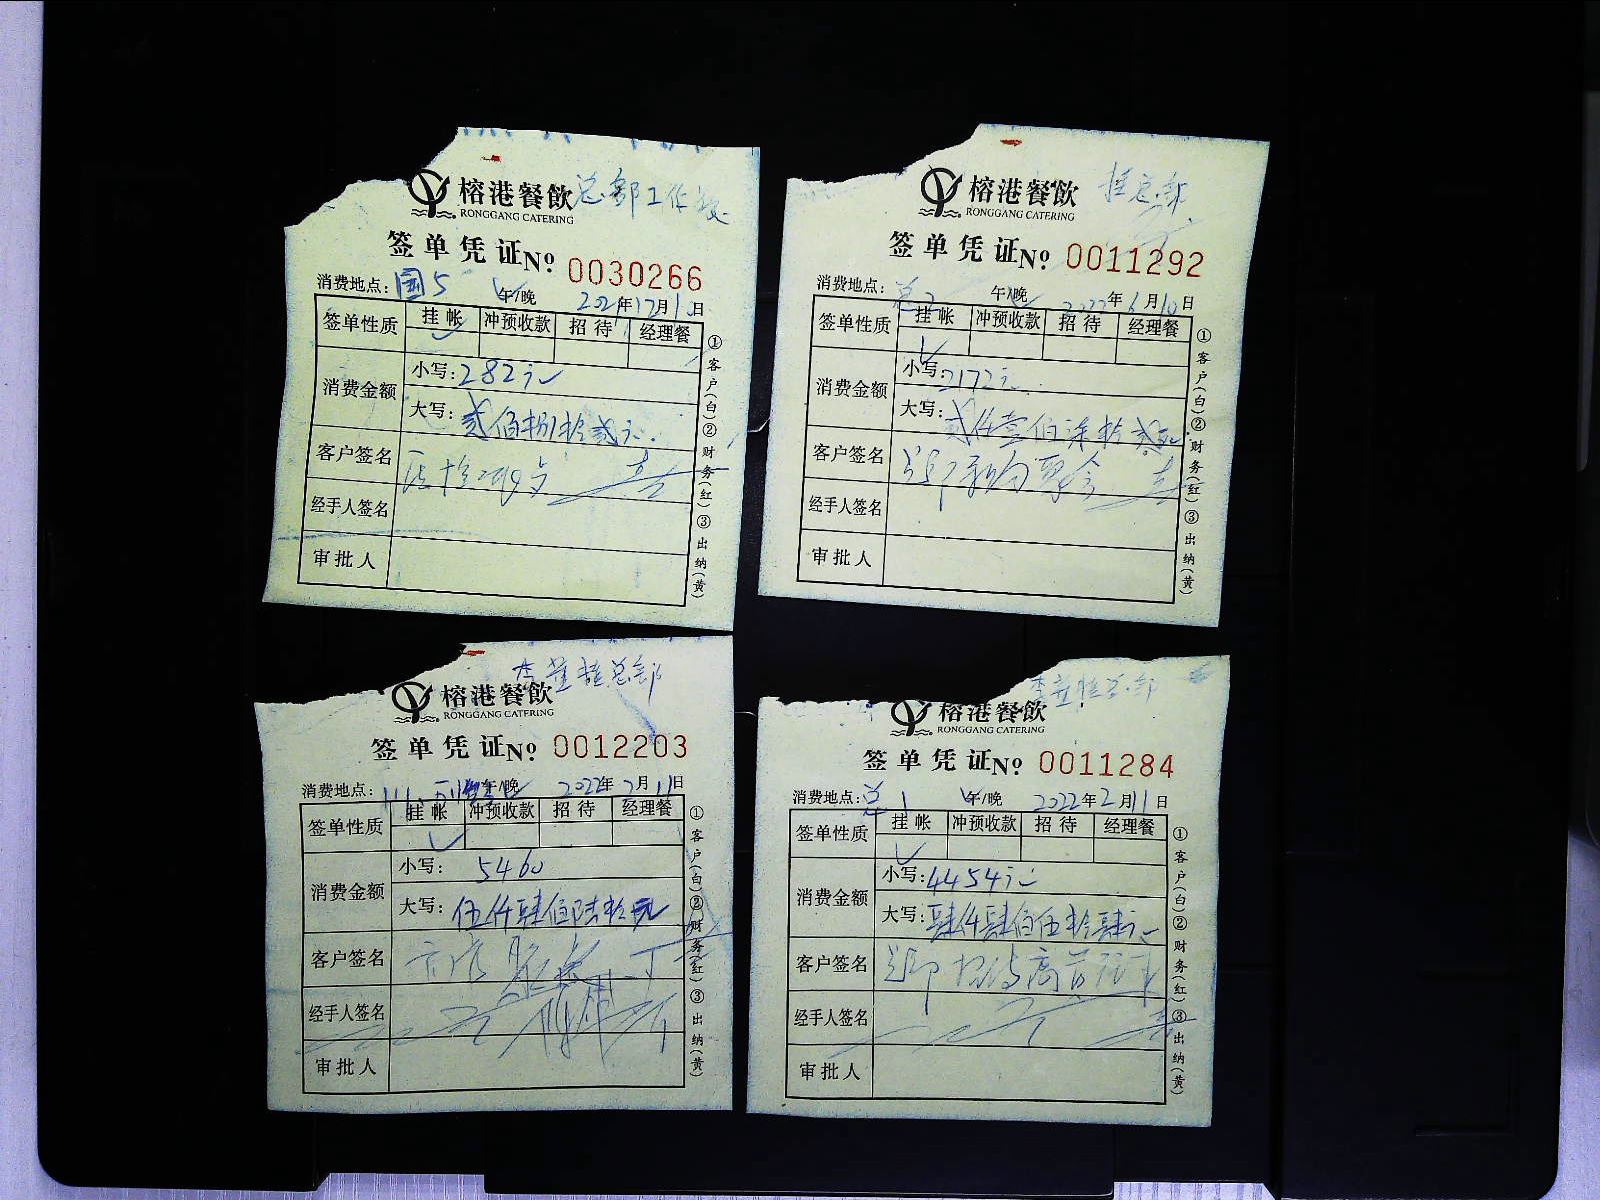 榕港餐飲 总部工作餐
RONGGANG CATERING
签单凭证 No 0030266
消费地点: 国5 午/晚 2021年12月10日
签单性质 挂帐 冲预收款 招待 经理餐
消费金额 小写: 282元
大写: 贰佰捌拾贰元
客户签名
经手人签名
审批人
①客户(白)②财务(红)③出纳(黄)
榕港餐飲 挂总部
RONGGANG CATERING
签单凭证 No 0011292
消费地点: 总2 午/晚 2022年6月10日
签单性质 挂帐 冲预收款 招待 经理餐
消费金额 小写: 2172元
大写: 贰仟壹佰柒拾贰元
客户签名
经手人签名
审批人
①客户(白)②财务(红)③出纳(黄)
李董挂总部
榕港餐飲
RONGGANG CATERING
签单凭证 No 0012203
消费地点: 午/晚 2022年2月11日
签单性质 挂帐 冲预收款 招待 经理餐
消费金额 小写: 5460
大写: 伍仟肆佰陆拾元
客户签名
经手人签名
审批人
①客户(白)②财务(红)③出纳(黄)
李董挂总部
榕港餐飲
RONGGANG CATERING
签单凭证 No 0011284
消费地点: 总1 午/晚 2022年2月11日
签单性质 挂帐 冲预收款 招待 经理餐
消费金额 小写: 4454元
大写: 肆仟肆佰伍拾肆元
客户签名
经手人签名
审批人
①客户(白)②财务(红)③出纳(黄)